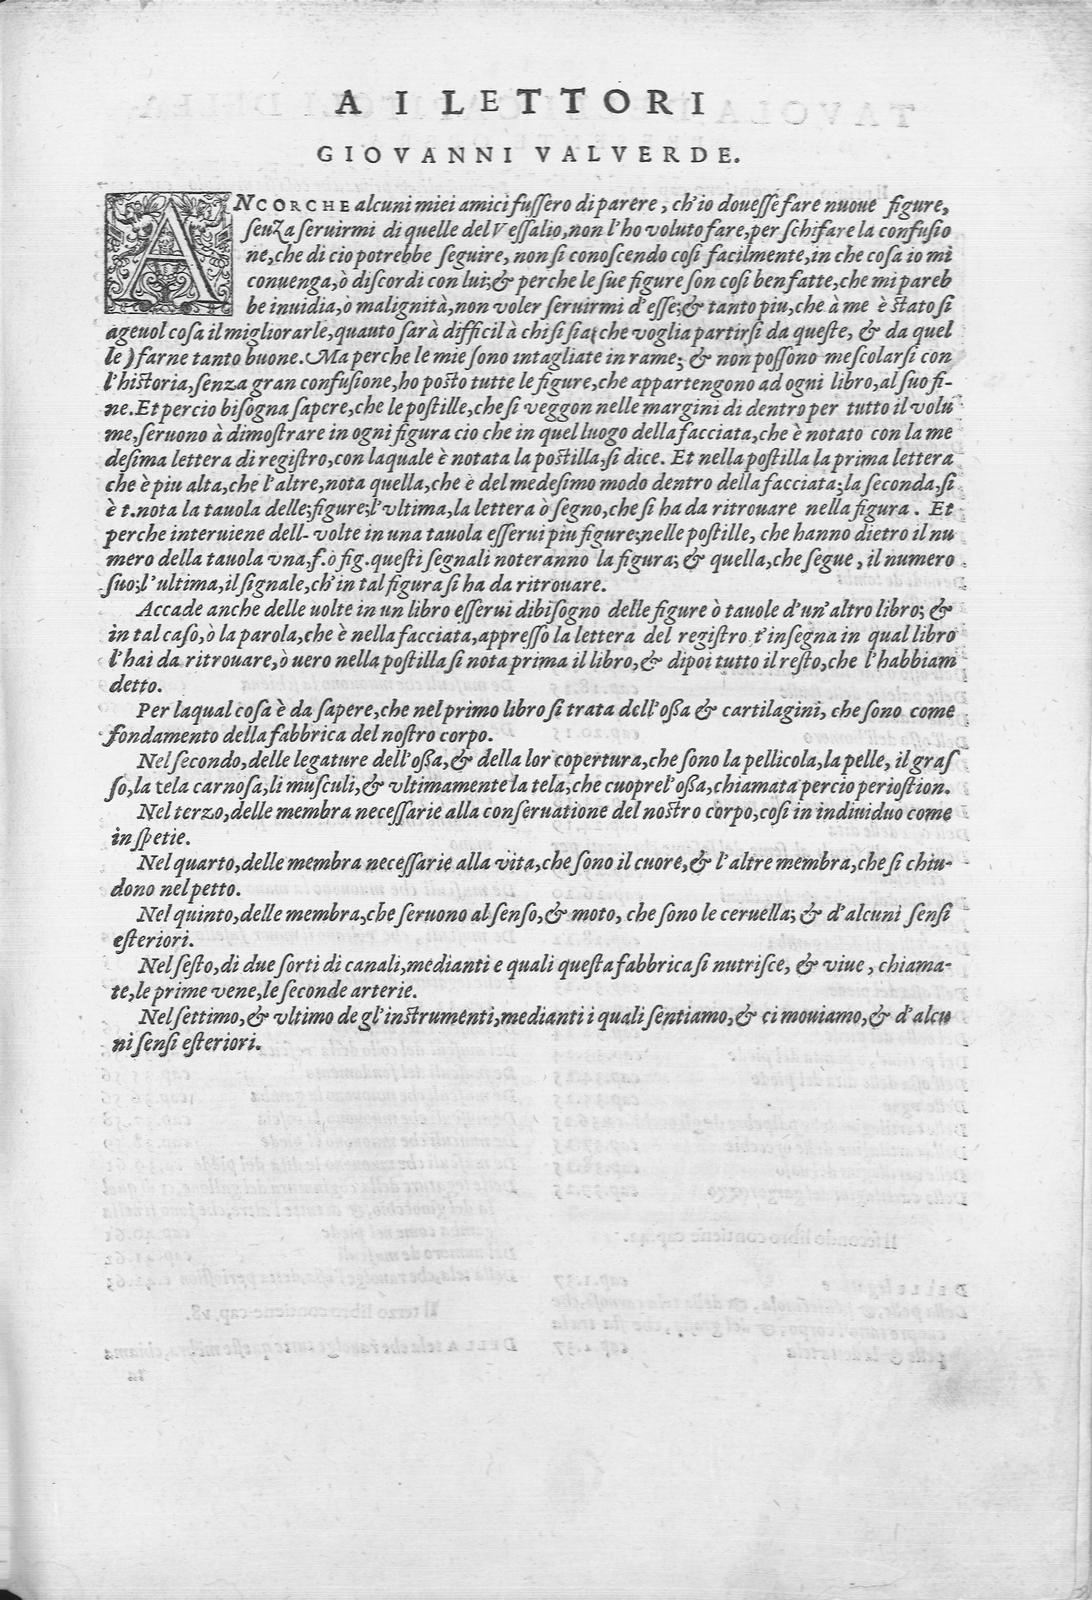 A I LETTORI
GIOVANNI VALVERDE.
ANCORCHE alcuni miei amici fussero di parere, ch'io douesse fare nuoue figure,
seuza seruirmi di quelle del Vessalio, non l'ho voluto fare, per schifare la confusio
ne, che di cio potrebbe seguire, non si conoscendo cosi facilmente, in che cosa io mi
conuenga, ò discordi con lui; & perche le sue figure son cosi ben fatte, che mi pareb
be inuidia, ò malignità, non voler seruirmi d'esse; & tanto piu, che à me è stato si
ageuol cosa il migliorarle, quauto sarà difficil à chi si sia (che voglia partirsi da queste, & da quel
le) farne tanto buone. Ma perche le mie sono intagliate in rame; & non possono mescolarsi con
l'historia, senza gran confusione, ho posto tutte le figure, che appartengono ad ogni libro, al suo fi-
ne. Et percio bisogna sapere, che le postille, che si veggon nelle margini di dentro per tutto il volu
me, seruono à dimostrare in ogni figura cio che in quel luogo della facciata, che è notato con la me
desima lettera di registro, con laquale è notata la postilla, si dice. Et nella postilla la prima lettera
che è piu alta, che l'altre, nota quella, che è del medesimo modo dentro della facciata; la seconda, si
è t. nota la tauola delle; figure; l'vltima, la lettera ò segno, che si ha da ritrouare nella figura. Et
perche interuiene dell- volte in una tauola esserui piu figure; nelle postille, che hanno dietro il nu
mero della tauola vna, f. ò fig. questi segnali noteranno la figura; & quella, che segue, il numero
suo; l'ultima, il signale, ch'in tal figura si ha da ritrouare.
Accade anche delle uolte in un libro esserui dibisogno delle figure ò tauole d'un'altro libro; &
in tal caso, ò la parola, che è nella facciata, appresso la lettera del registro t'insegna in qual libro
l'hai da ritrouare, ò uero nella postilla si nota prima il libro, & dipoi tutto il resto, che l'habbiam
detto.
Per laqual cosa è da sapere, che nel primo libro si trata dell'ossa & cartilagini, che sono come
fondamento della fabbrica del nostro corpo.
Nel secondo, delle legature dell'ossa, & della lor copertura, che sono la pellicola, la pelle, il gras
so, la tela carnosa, li musculi, & vltimamente la tela, che cuopre l'ossa, chiamata percio periostion.
Nel terzo, delle membra necessarie alla conseruatione del nostro corpo, cosi in indiuiduo come
in spetie.
Nel quarto, delle membra necessarie alla vita, che sono il cuore, & l'altre membra, che si chiu-
dono nel petto.
Nel quinto, delle membra, che seruono al senso, & moto, che sono le ceruella; & d'alcuni sensi
esteriori.
Nel sesto, di due sorti di canali, medianti e quali questa fabbrica si nutrisce, & viue, chiama-
te, le prime vene, le seconde arterie.
Nel settimo, & vltimo de gl'instrumenti, medianti i quali sentiamo, & ci mouiamo, & d'alcu
ni sensi esteriori.